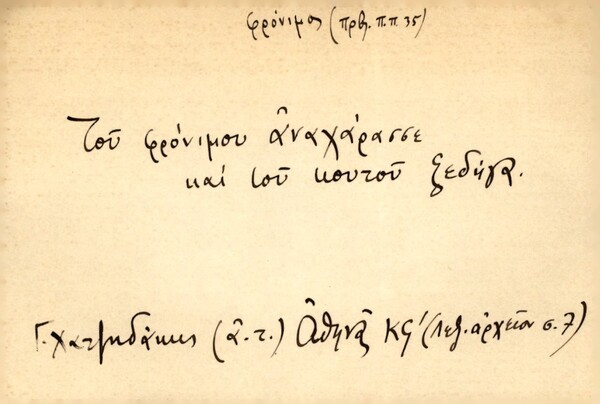 φρόνιμος (πρβ. π.π. 35)
Τοῦ φρόνιμου ἀναχάρασσε
καί τοῦ κουτοῦ ξεδήγα.
Γ. Χατζηδάκις (ἀ. τ.) Ἀθηνᾶ ΚϚ′ (Λεξ. ἀρχεῖον σ. 7)